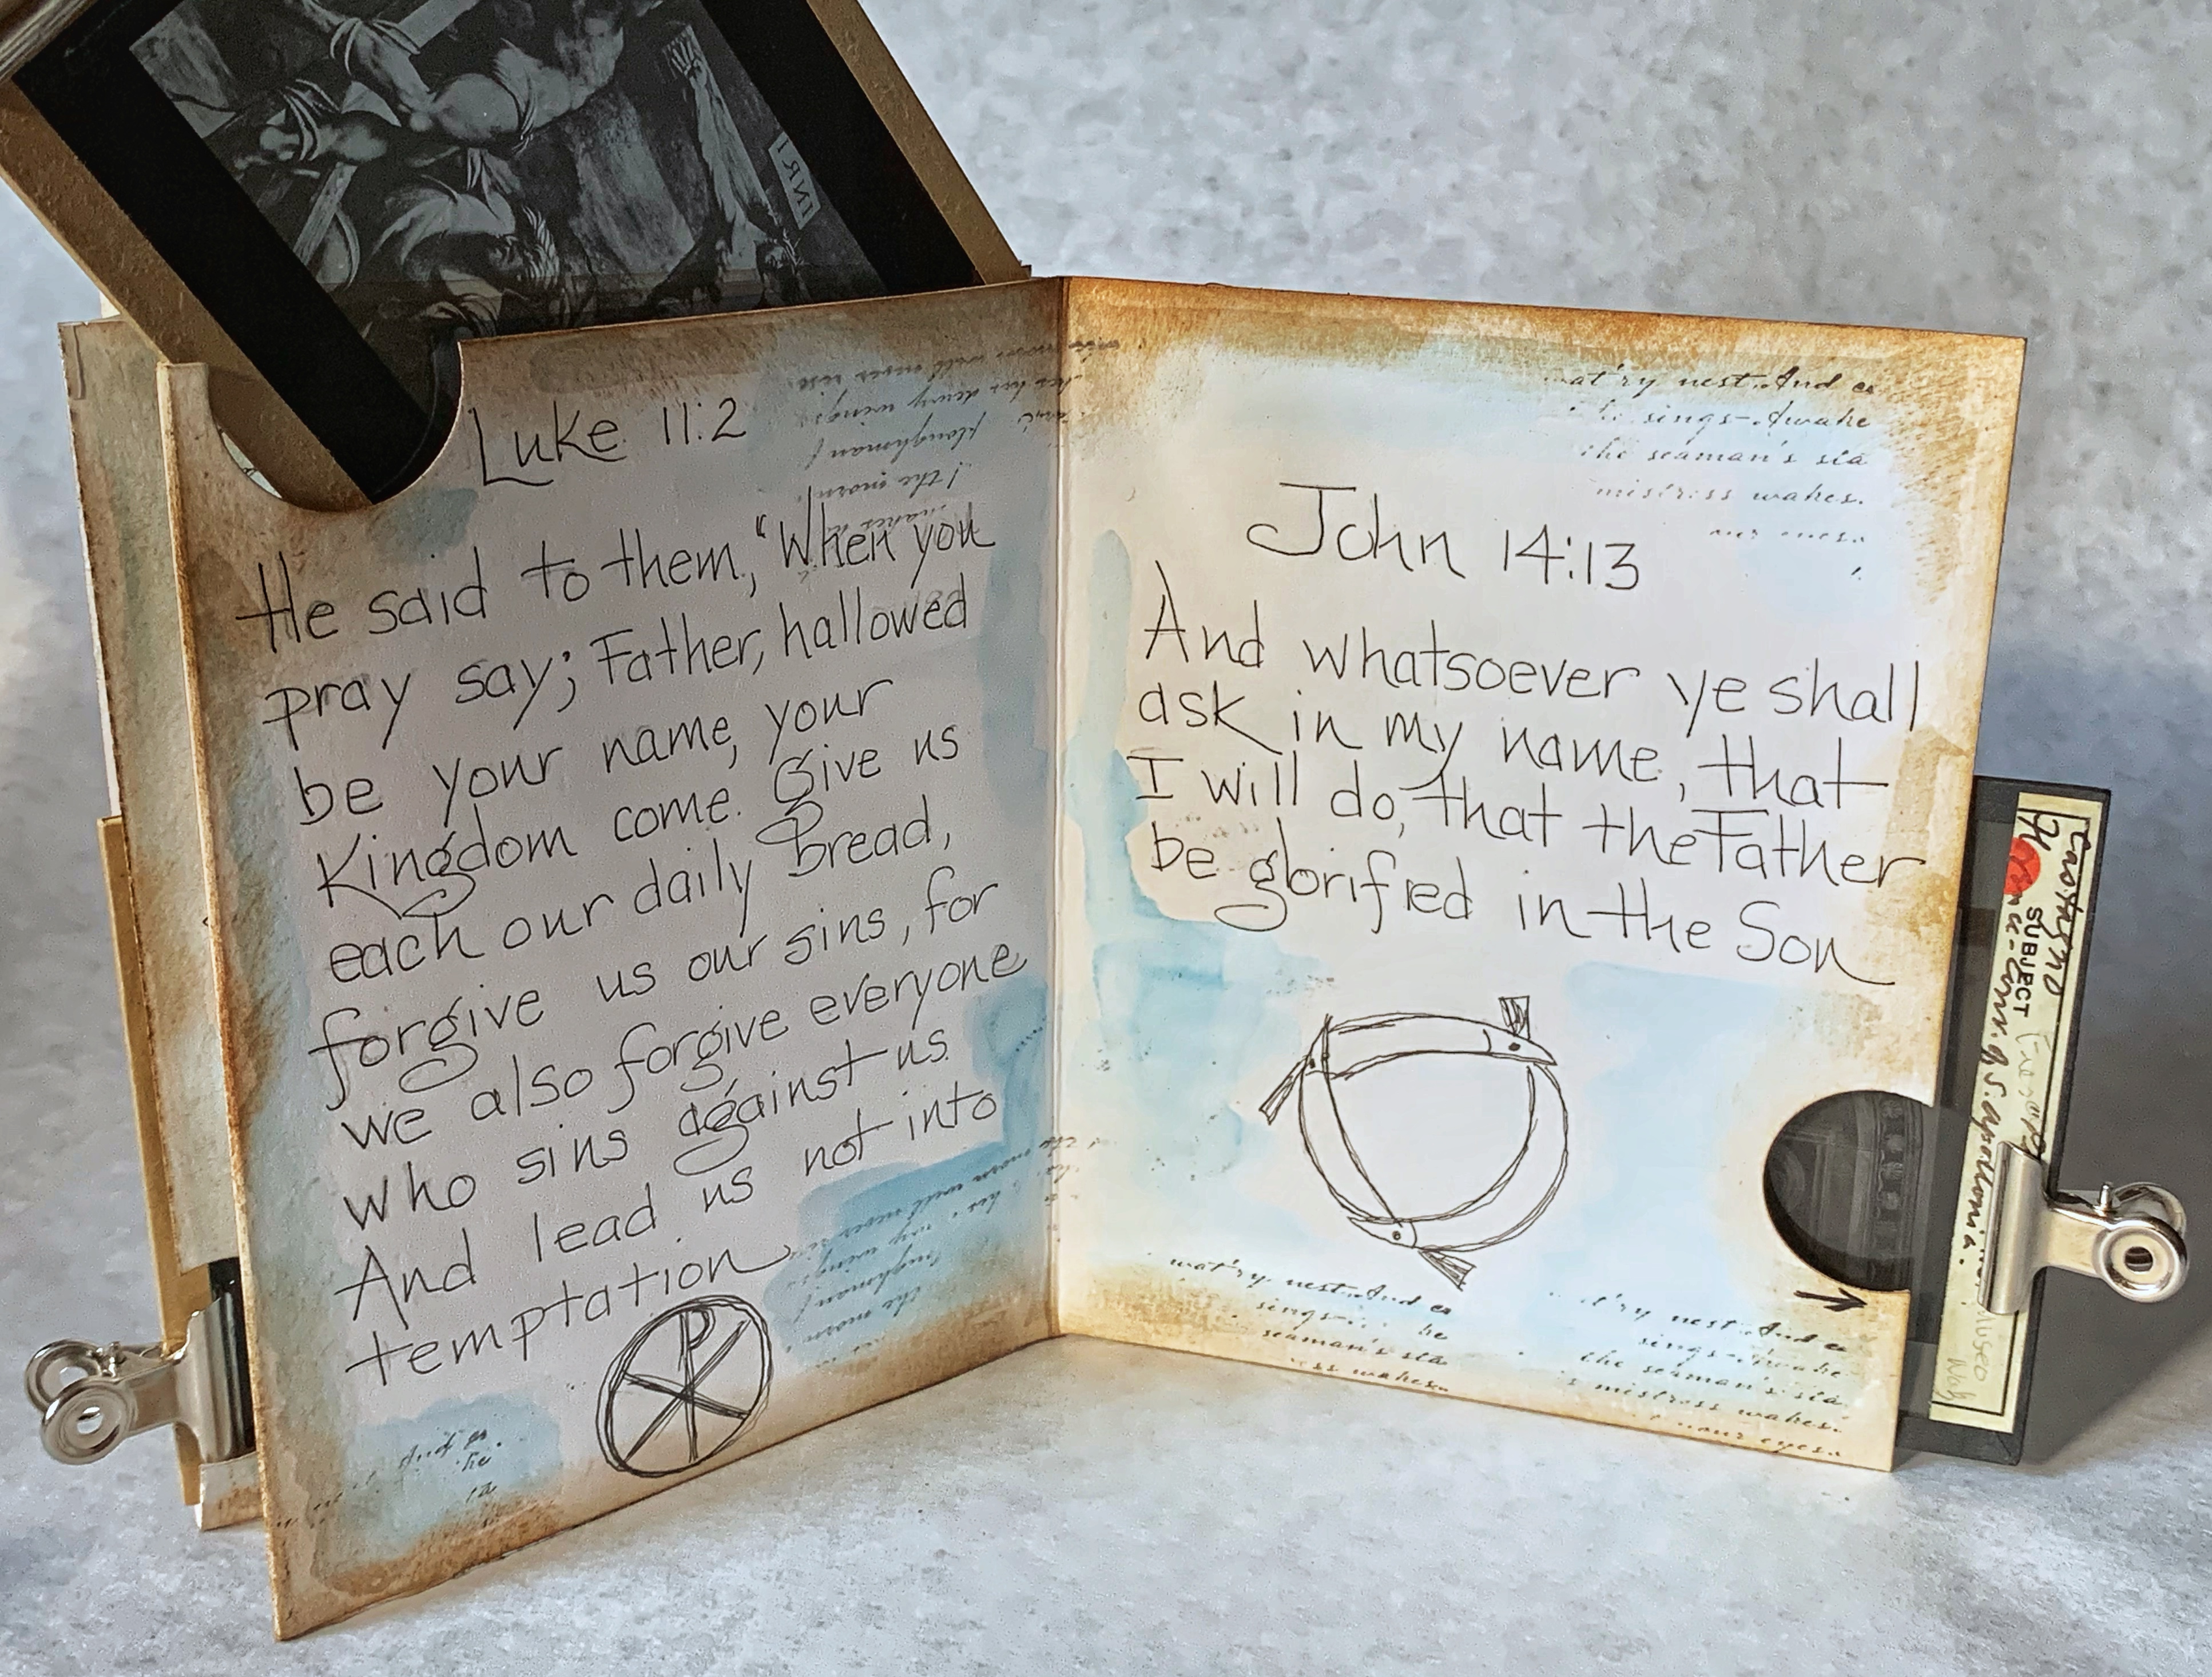 INRI
Luke 11:2
He said to them, "When you
pray say; Father, hallowed
be your name, your
Kingdom come. Give us
each our daily bread,
forgive us our sins, for
we also forgive everyone
who sins against us
And lead us not into
temptation
wat'ry nest. And
sings-Awake
the seaman's
mistress wakes.
John 14:13
And whatsoever ye shall
ask in my name, that
I will do, that the Father
be glorified in the Son
wat'ry nest. And
sings-
seaman's
wakes.
nest. And
sings-
the seaman's
mistress wakes.
eyes.
Castagno
SUBJECT